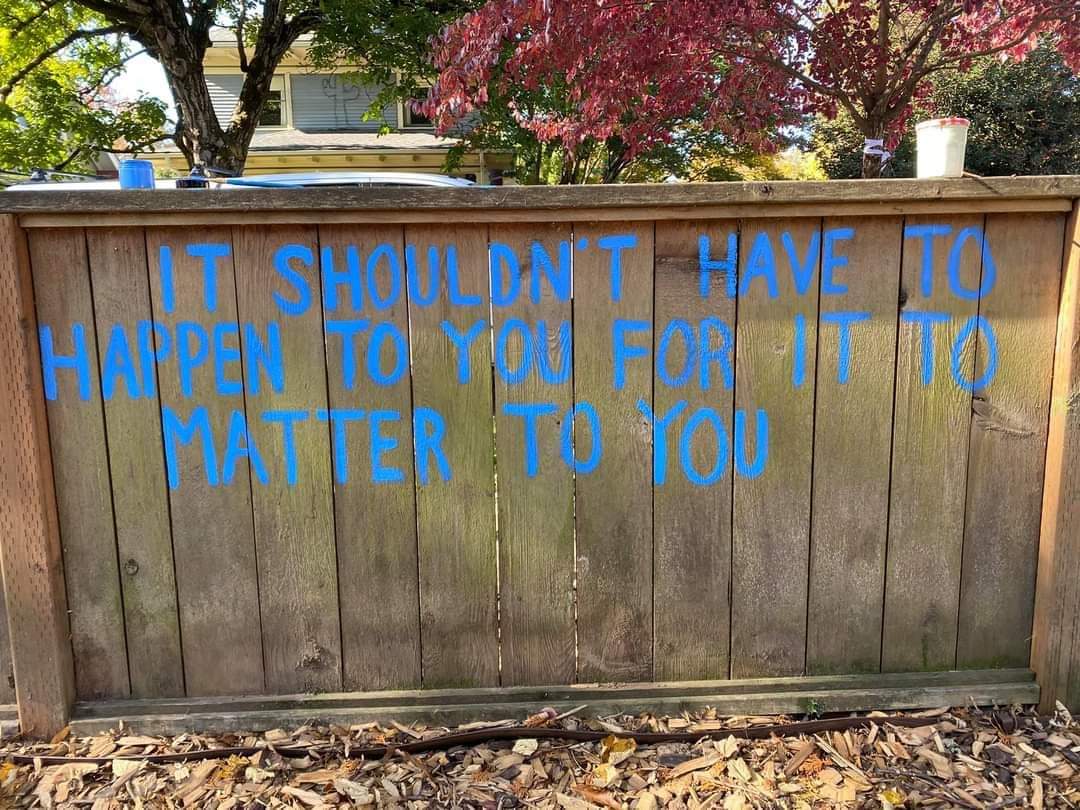 IT SHOULDN'T HAVE TO
HAPPEN TO YOU FOR IT TO
MATTER TO YOU